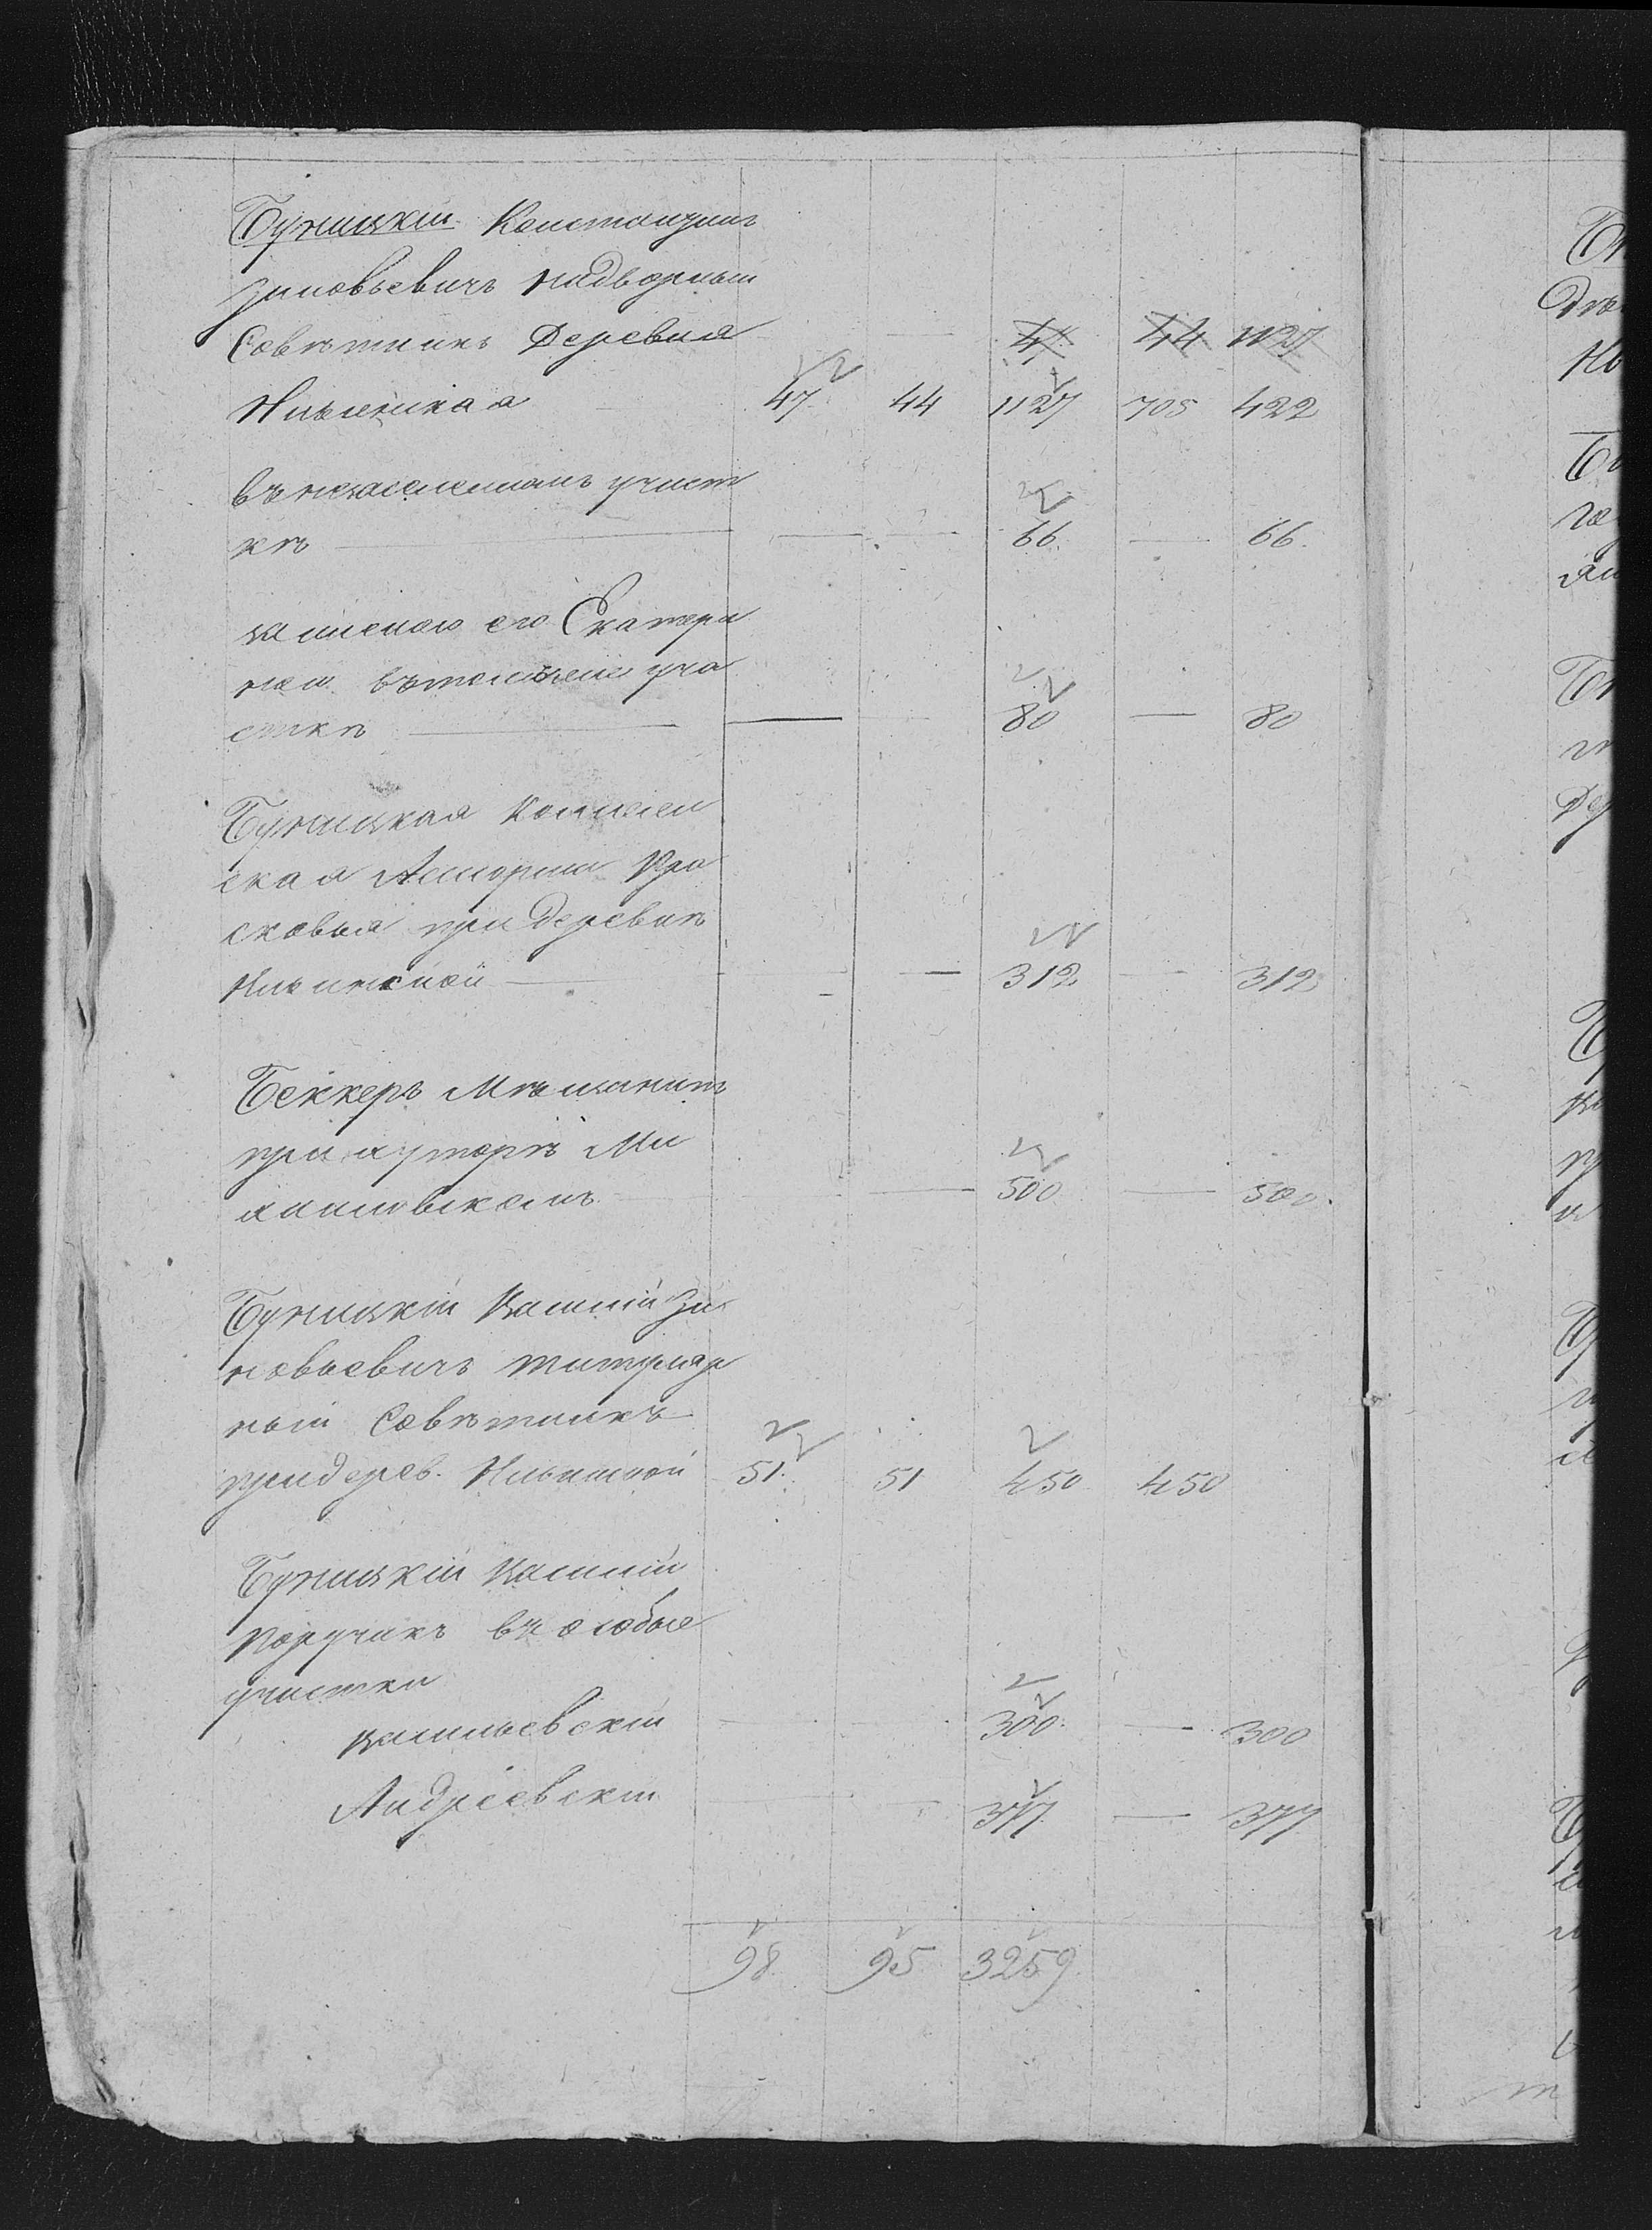 Буницкій Константинъ
Зиновьевичъ надворный
Совѣтникъ Деревня — 47 44 1127
Ильинская 47 44 1127 705 422
въ незаселенномъ участ
кѣ — — — 66 — 66
женою его Екатери
ною въ участкѣ
— — 80 — 80
Буницкая Коллеж
ская Асессорша Пра
сковья при деревнѣ
Ильинской — — 312 — 312
Беккеръ Мѣщанинъ
при хуторѣ Ми
хайловскомъ — 500 — 500
Буницкій Василій Зи
новьевичъ титуляр
ный Совѣтникъ
при дерев. Ильинской 51 51 450 450
Буницкій Василій
Поручикъ въ особые
участки
Васильевскій — — 300 — 300
Андреевскій — — 377 — 377
98 95 3259